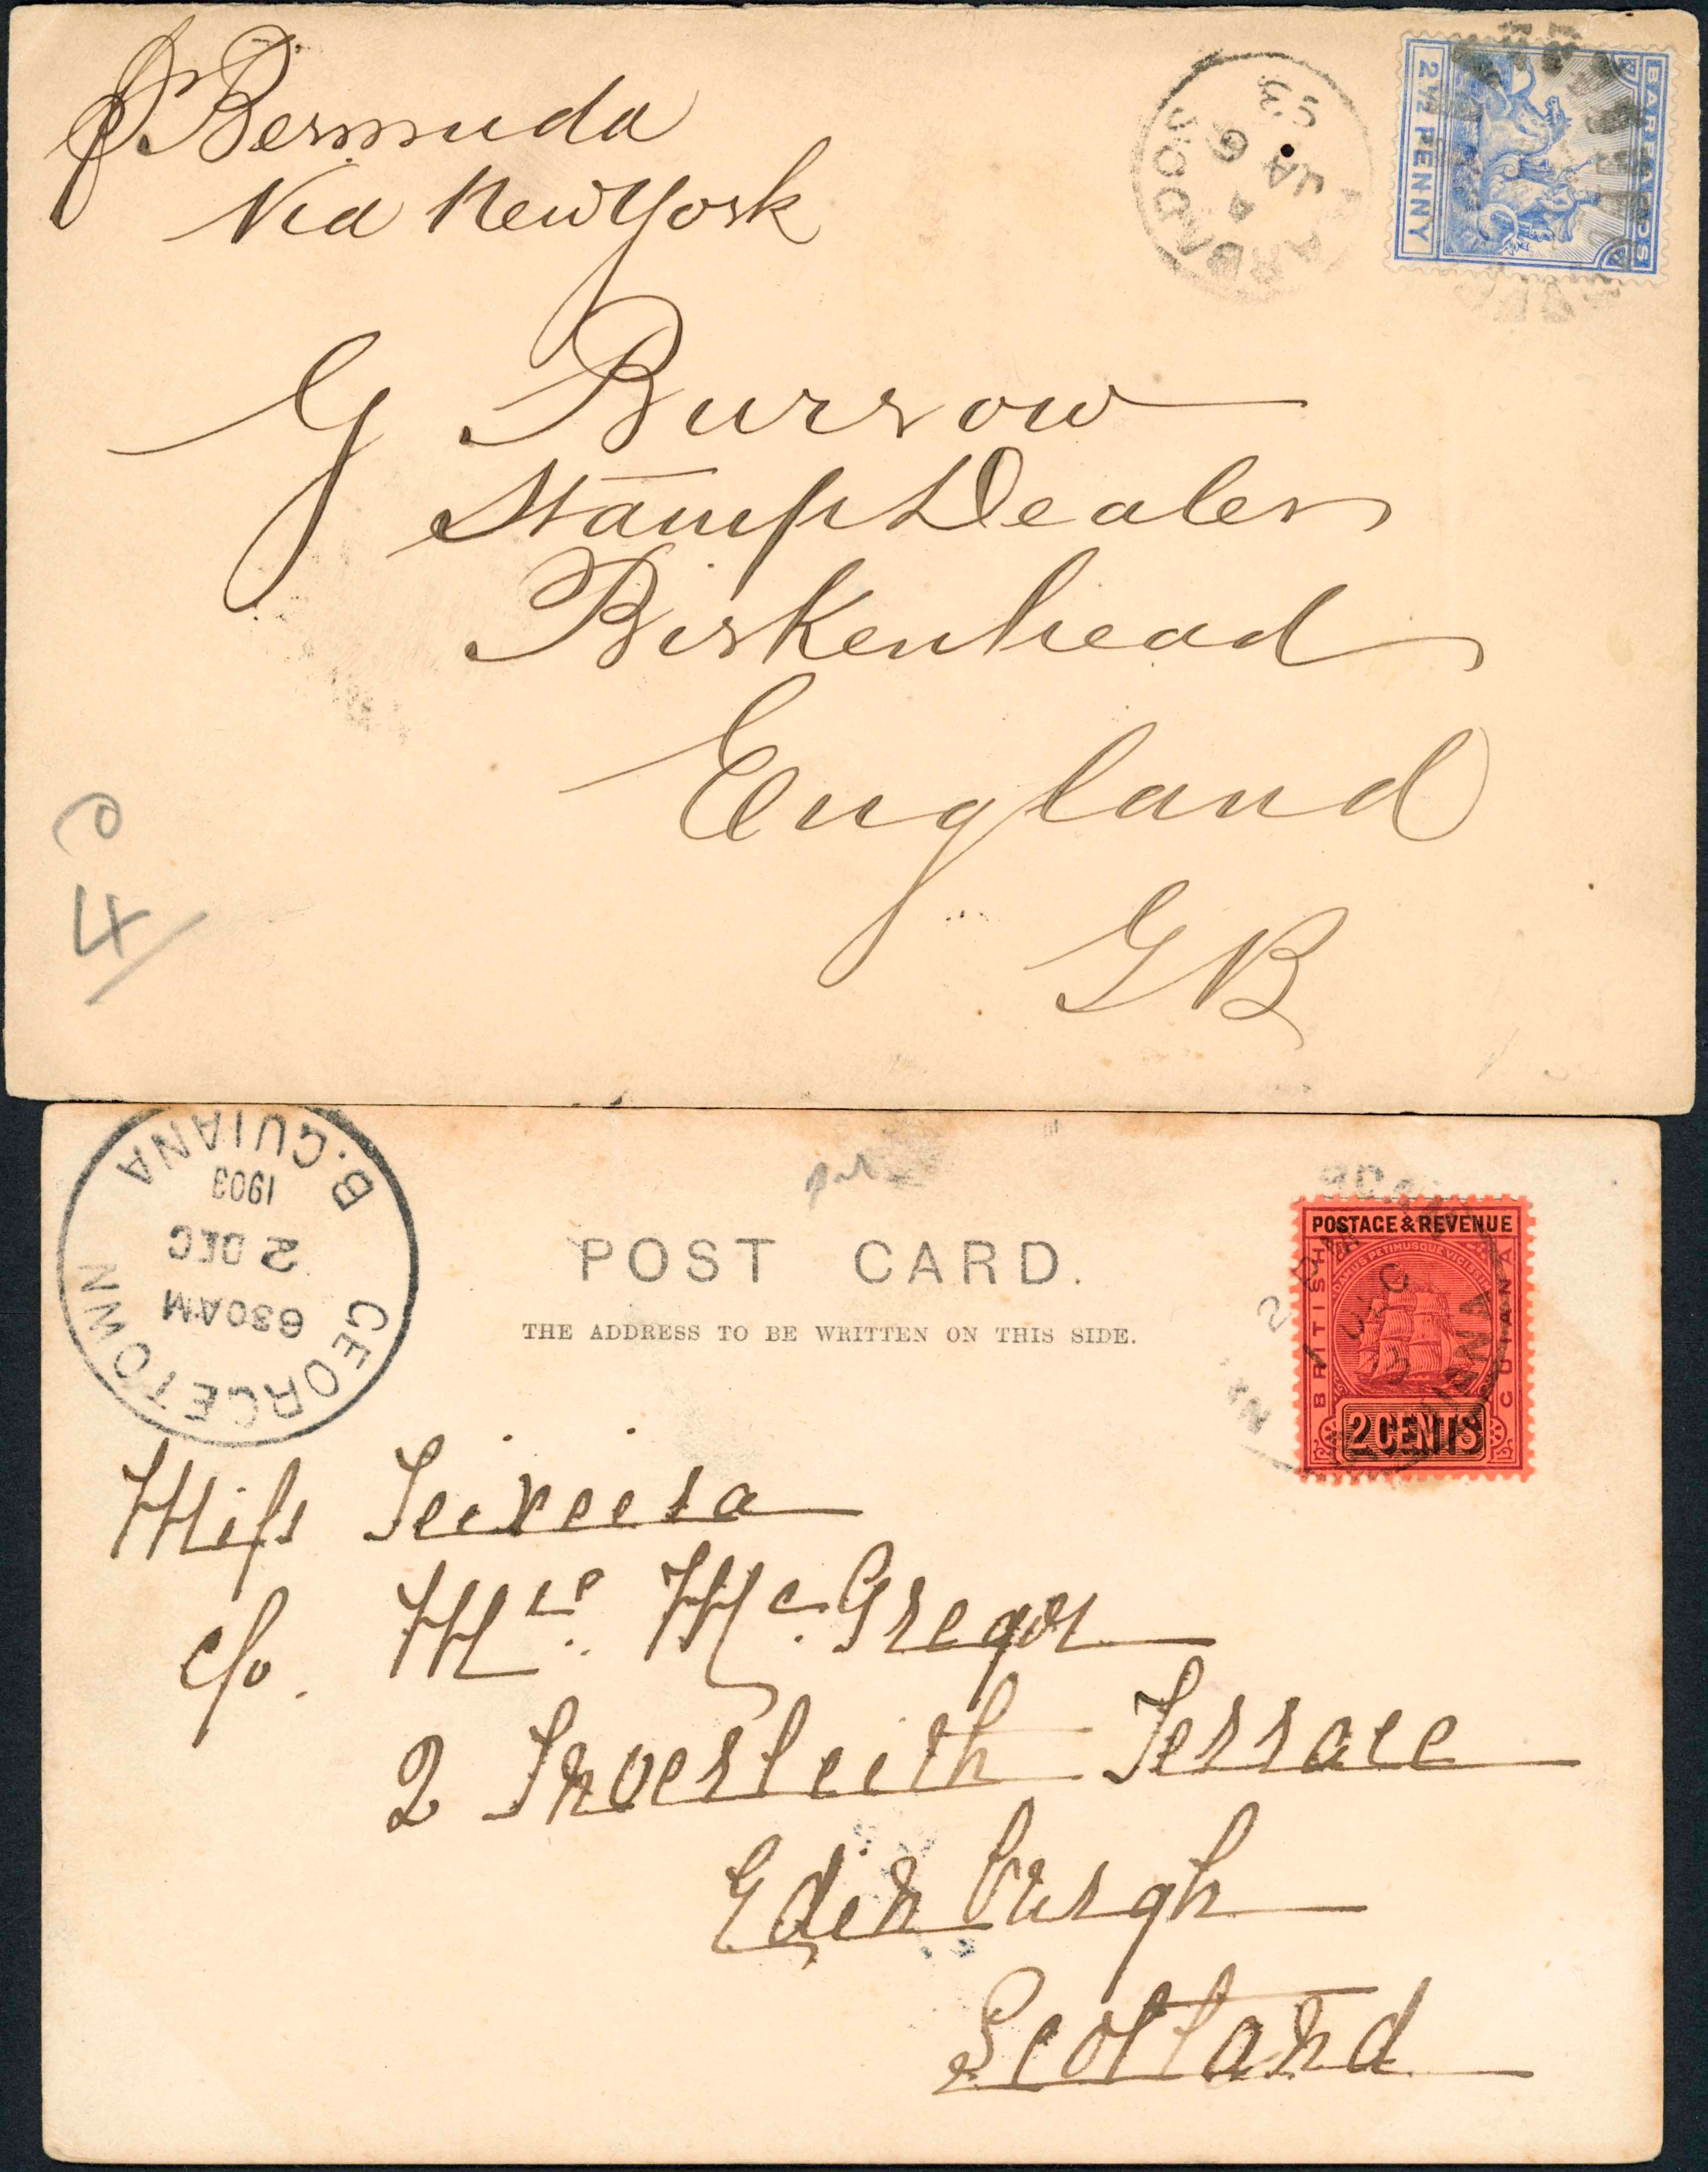 p Bermuda
Via New York
BARBADOS
A
JA 6
03
BARBADOS
2½ PENNY
G Burrow
Stamp Dealer
Birkenhead
England
GB
4
GEORGETOWN
630AM
2 DEC
1903
B.GUIANA
POST CARD.
THE ADDRESS TO BE WRITTEN ON THIS SIDE.
POSTAGE & REVENUE
BRITISH
GUIANA
DAMUS PETIMUSQUE VICISSIM
2 CENTS
Miss Teixeira
c/o. Mrs. Mc.Gregor
2 Inverleith Terrace
Edinburgh
Scotland